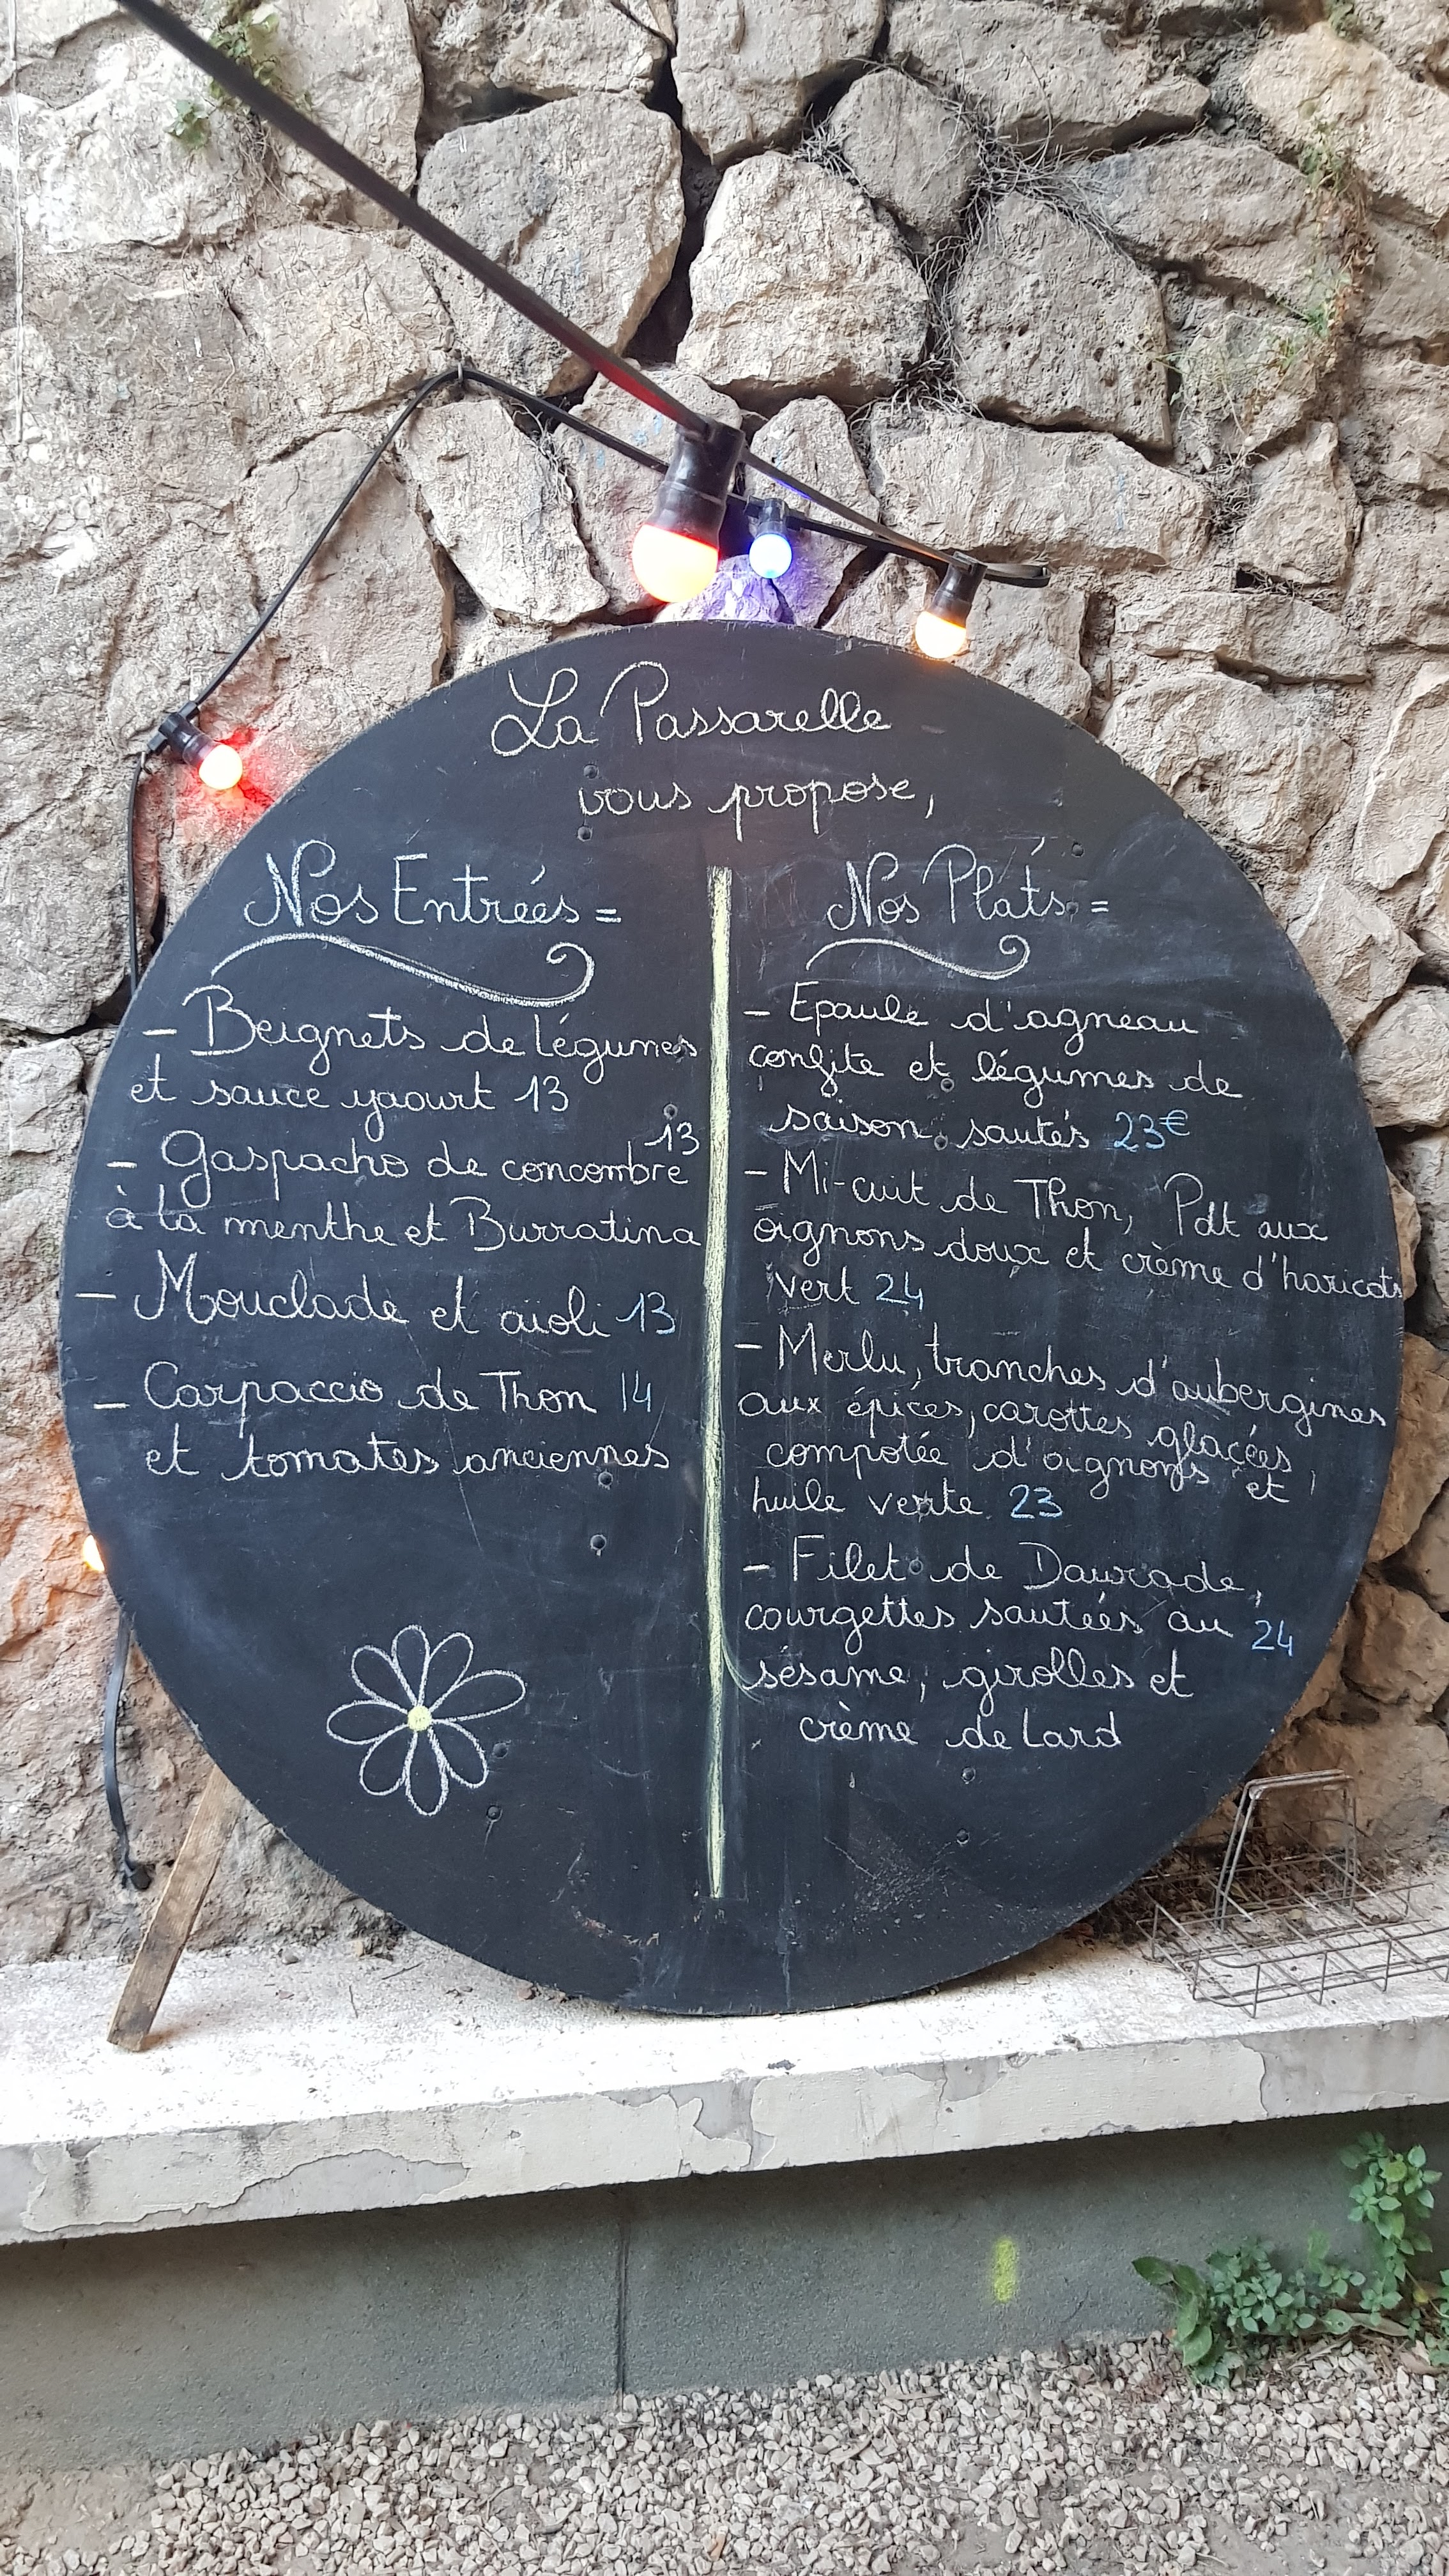 La Passarelle
vous propose,
Nos Entrées =
- Beignets de légumes
et sauce yaourt 13
- Gaspacho de concombre 13
à la menthe et Burratina
- Mouclade et aioli 13
- Carpaccio de Thon 14
et tomates anciennes
Nos Plats =
- Epaule d'agneau
confite et légumes de
saison sautés 23€
- Mi-cuit de Thon, Pdt aux
oignons doux et crème d'haricots
vert 24
- Merlu, tranches d'aubergines
aux épices, carottes glacées,
compotée d'oignons et
huile verte 23
- Filet de Daurade,
courgettes sautées au 24
sésame, girolles et
crème de lard